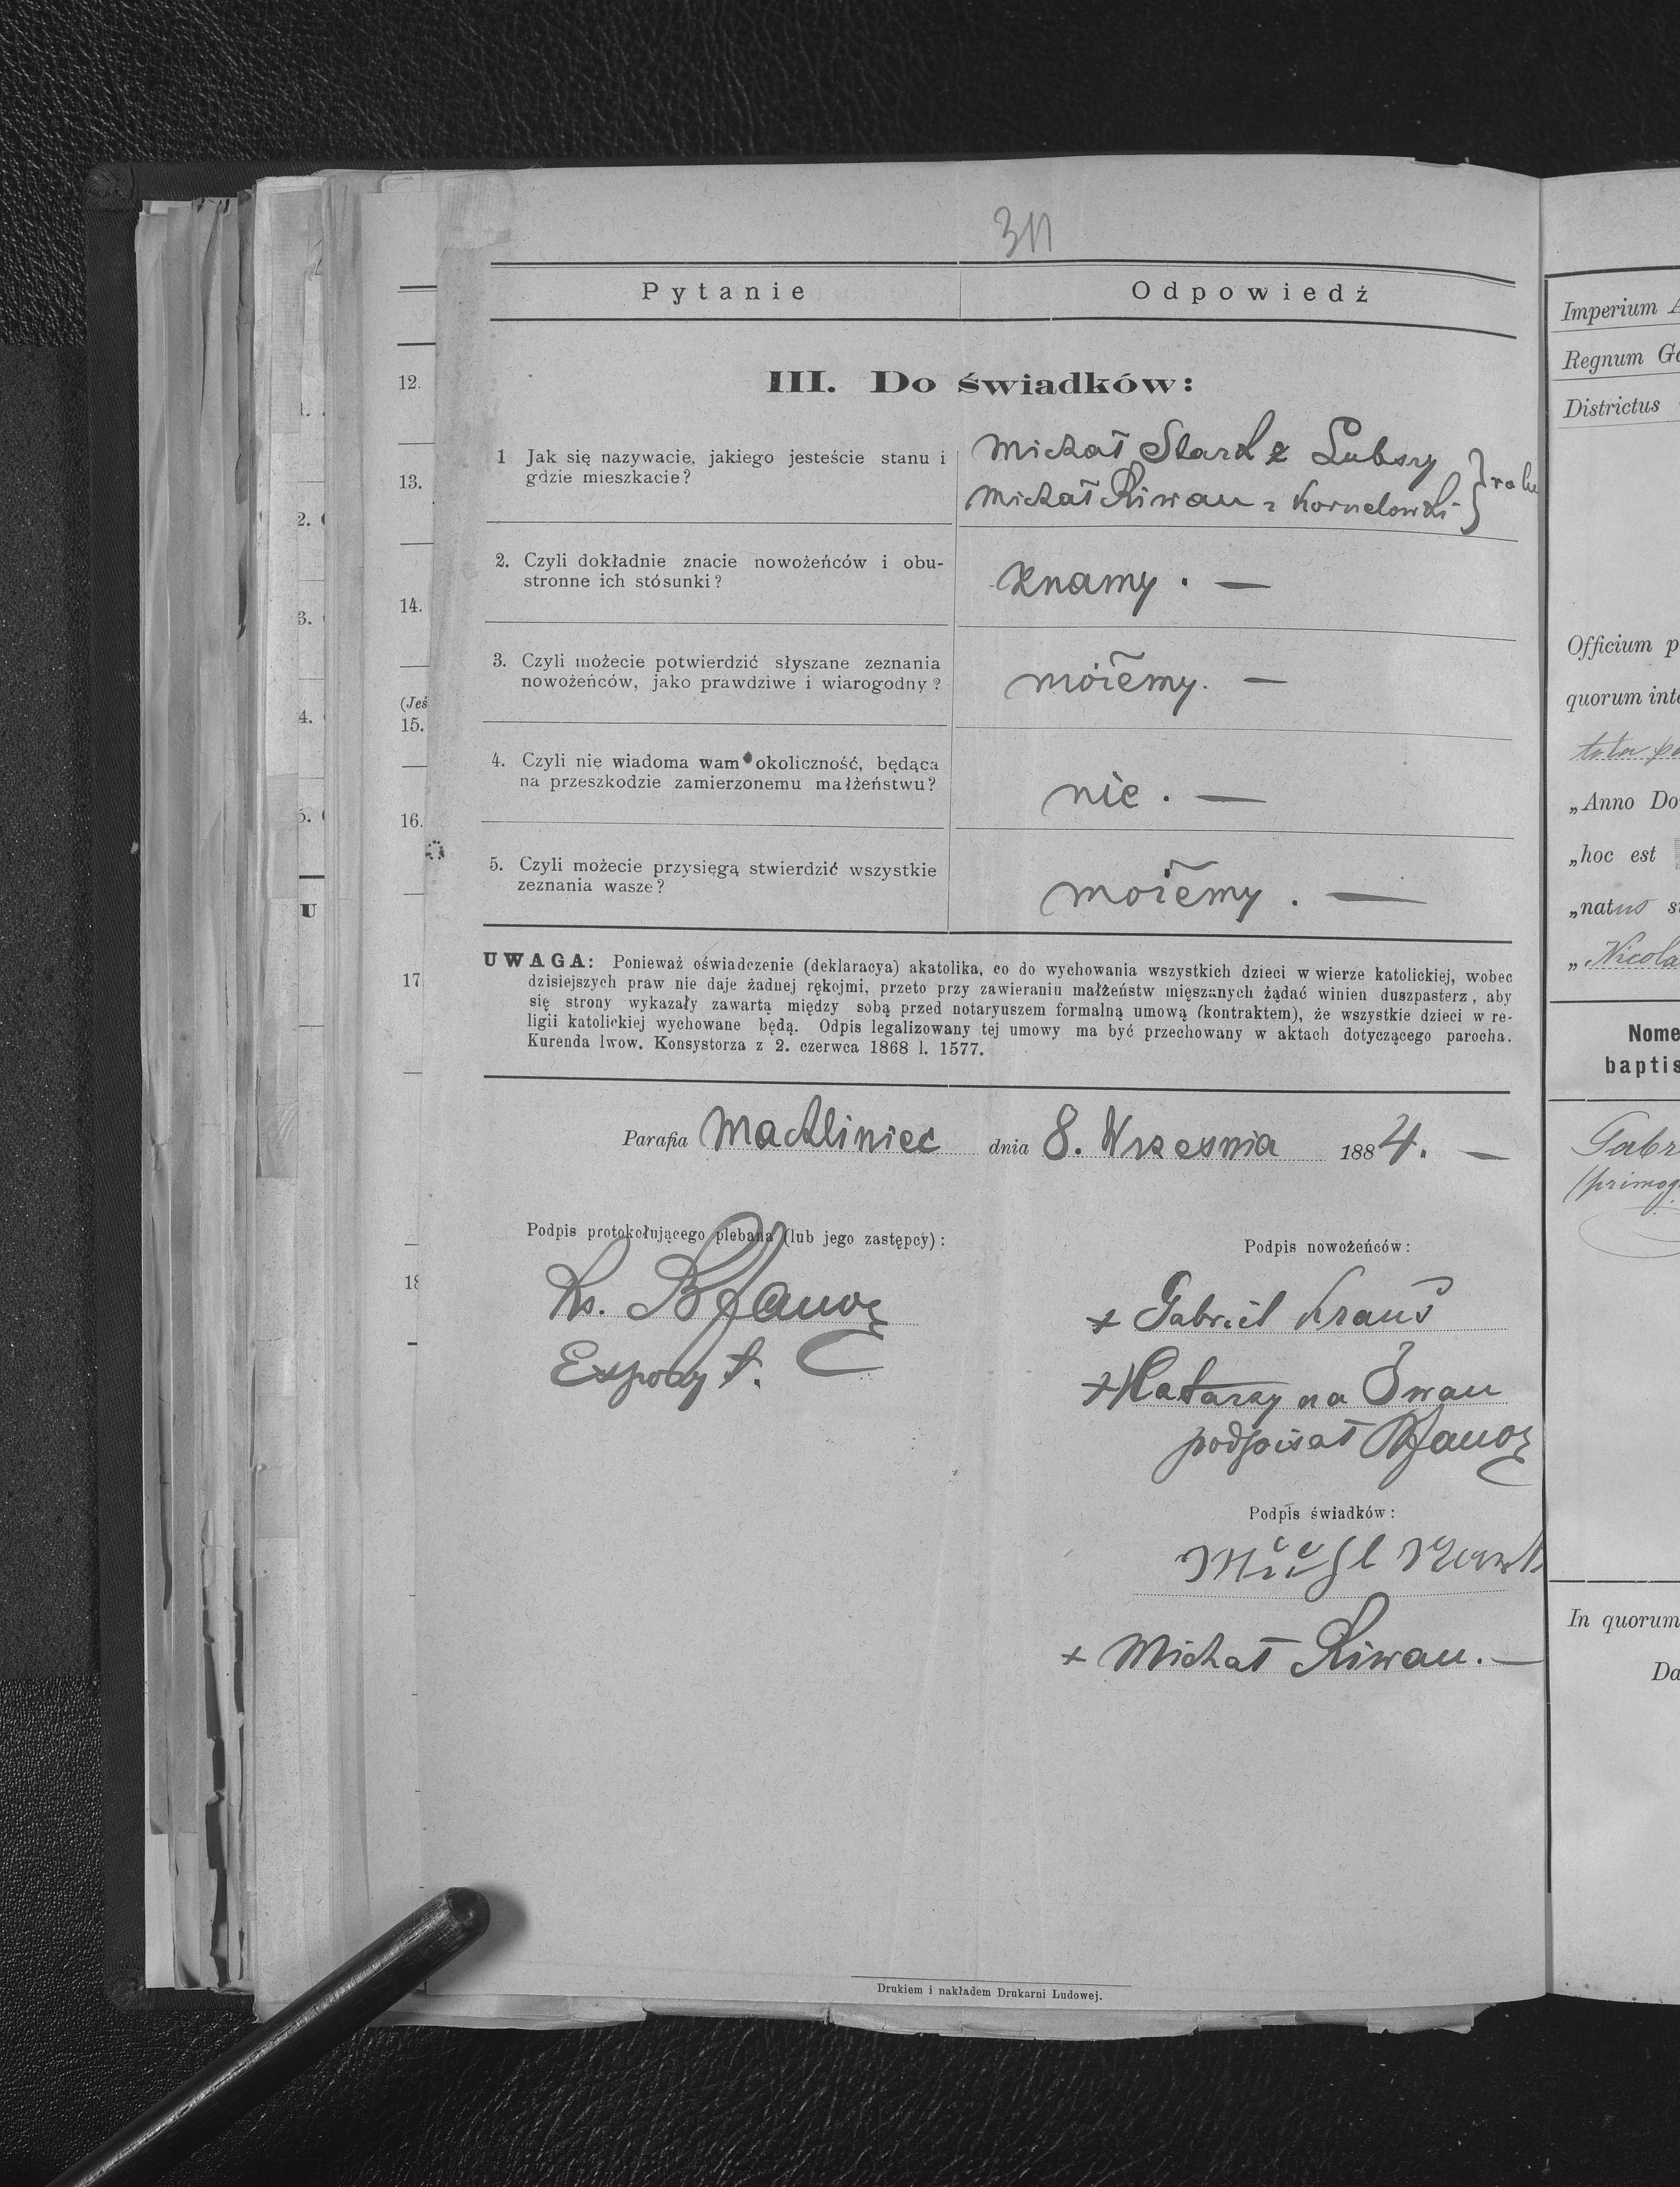 311
Pytanie
Odpowiedź
III. Do świadków:
1 Jak się nazywacie, jakiego jesteście stanu i
gdzie mieszkacie?
Michał Stark z Lubszy
Michał Riwau z Kornelowki
2. Czyli dokładnie znacie nowożeńców i obu-
stronne ich stósunki?
znamy. —
3. Czyli możecie potwierdzić słyszane zeznania
nowożeńców, jako prawdziwe i wiarogodny?
możemy. —
4. Czyli nie wiadoma wam okoliczność, będąca
na przeszkodzie zamierzonemu małżeństwu?
nie. —
5. Czyli możecie przysięgą stwierdzić wszystkie
zeznania wasze?
możemy. —
UWAGA: Ponieważ oświadczenie (deklaracya) akatolika, co do wychowania wszystkich dzieci w wierze katolickiej, wobec
dzisiejszych praw nie daje żadnej rękojmi, przeto przy zawieraniu małżeństw mięszanych żądać winien duszpasterz, aby
się strony wykazały zawartą między sobą przed notaryuszem formalną umową (kontraktem), że wszystkie dzieci w re-
ligii katolickiej wychowane będą. Odpis legalizowany tej umowy ma być przechowany w aktach dotyczącego parocha.
Kurenda lwow. Konsystorza z 2. czerwca 1868 l. 1577.
Parafia Machliniec dnia 8. Września 1884. —
Podpis protokołującego plebana (lub jego zastępcy):
Ks.
Expozyt.
Podpis nowożeńców:
+ Gabriel Kraus
+ Katarzyna Iwau
podpisał
Podpis świadków:
+ Michał Riwau. —
Drukiem i nakładem Drukarni Ludowej.
12.
13.
14.
(Jeś
15.
16.
17
18
1.
2.
3.
4.
5.
U
Imperium A
Regnum Ga
Districtus
Officium p
quorum inte
„Anno Do
„hoc est
„natus s
„Nicola
Nome
baptis
Gabr
(primog
In quorum
Da